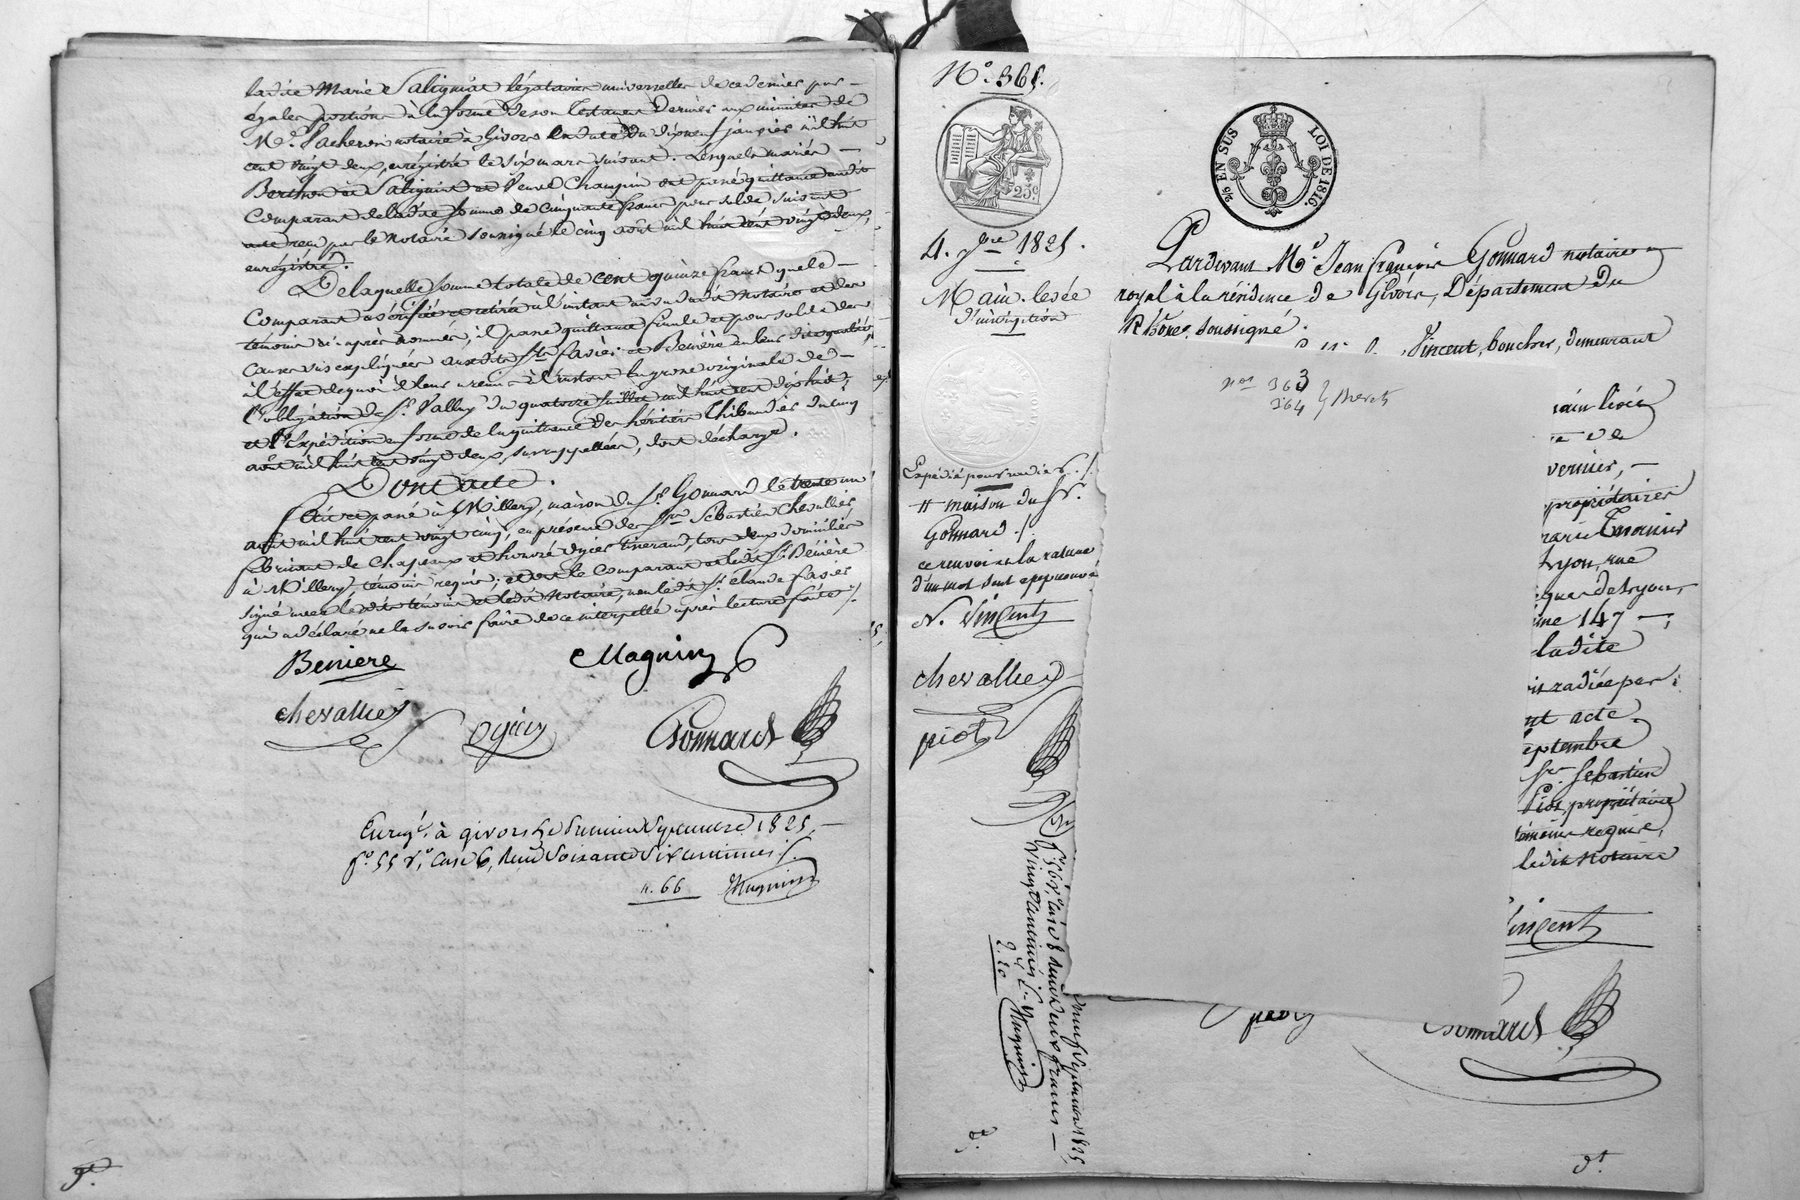 ladite Marie Salignat légataires universelles de ce dernier par
égales portions à la forme de son testament dernier aux minutes de
Me. Vacheron notaire à Givors en date du dixneuf janvier mil huit
cent vingt deux, enrégistré le six mars suivant. Lesquels mariés
Berthon et Salignat et Veuve Champin ont passé quittance audit
Comparant de ladite somme de Cinquante francs pour solde suivant
acte reçu par le Notaire soussigné le cinq août mil huit cent vingt deux,
enrégistré.
De laquelle somme totale de cent quinze francs que le
Comparant a vérifiée et retirée à l'instant au vu dudit Notaire et des
témoins ci-après nommés, il passe quittance finale et pour solde des
causes sus expliquées auxdits Srs. fasier et Benière en leurs dites qualités,
à l'effet de quoi il leur a remis à l'instant la grosse originale de
l'obligation du Sr. Valluy du quatorze juillet mil huit cent dix huit,
et l'Expédition en forme de la quittance des héritiers Thibaudier du cinq
août mil huit cent vingt deux, surrappellées, dont décharge.
Dont acte.
fait et passé à Millery, maison du Sr. Gonnard le trente un
août mil huit cent vingt cinq, en présence des Srs. Sébastien Chevallier
fabricant de Chapeaux et honoré ogier tisserand, tous deux domiciliés
à Millery, témoins requis; et ont le comparant et ledit Sr. Benière
signé avec lesdits témoins et ledit Notaire, non ledit Sr. Claude fasier
qui a déclaré ne le savoir faire de ce interpellé après lecture faite./.
Beniere Magnin
chevallier Ogier Gonnard
Enregé. à givors le premier Septembre 1825,
fo. 55 vo, Case 6, Reçu Soixante Six centimes./.
n. 66 Magnin
No. 365.
25c.
4. 7bre 1825.
Main-levée
d'inscription
Expédié pour radier./.
# maison du Sr.
Gonnard ./.
ce renvoi et la rature
d'un mot sont approuvés
N. Vincent
chevallier
piot
fo. 56 vo, Case 8 Reçu deux francs
Vingt centimes./.
2.20 Magnin
neuf Septembre 1825,
2/5 EN SUS
LOI DE 1816.
Pardevant Me. Jean françois Gonnard notaire
royal à la résidence de Givors, Département du
Rhône, soussigné.
Vincent, boucher, demeurant
nos 363
364 } Bervets
main levée
et de
vernier,
propriétaires
marie Thonier
Lyon, rue
ques de Lyon,
me 147
ladite
soit radiée par
nt acte.
eptembre
Srs. Sébastien
Piot, propriétaire
témoins requis,
ledit Notaire
Vincent
Gonnard